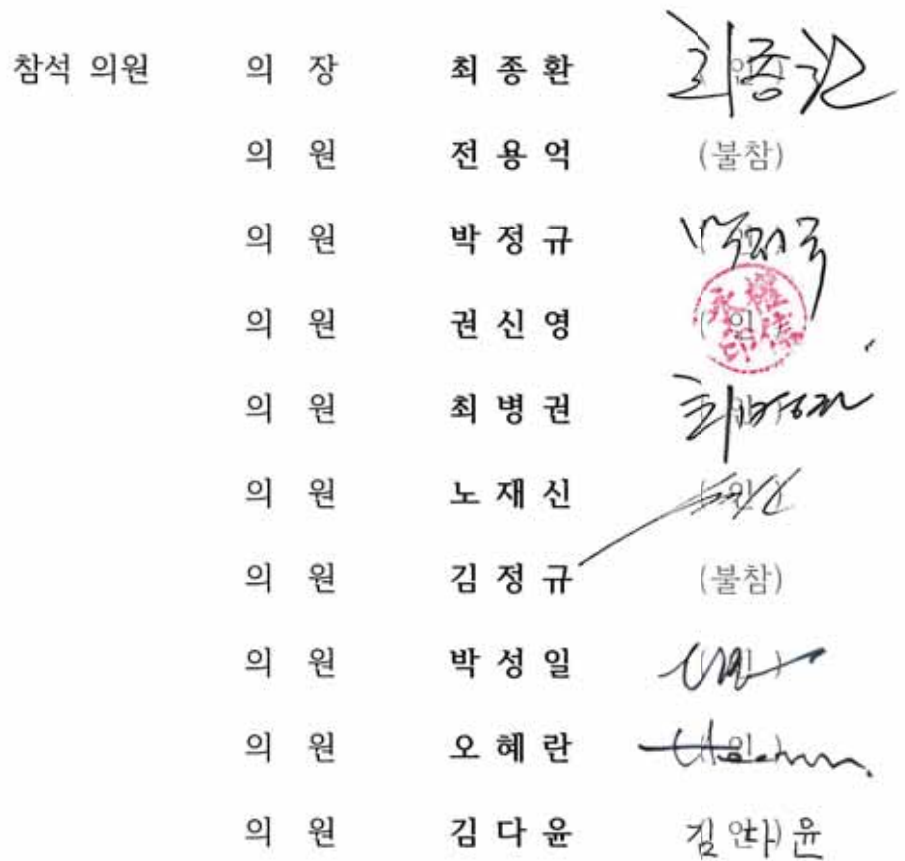 참석 의원 의 장 최 종 환 (인) 최종환
의 원 전 용 억 (불참)
의 원 박 정 규 (인)
의 원 권 신 영 (인)
의 원 최 병 권 (인) 최병권
의 원 노 재 신 (인)
의 원 김 정 규 (불참)
의 원 박 성 일 (인)
의 원 오 혜 란 (인)
의 원 김 다 윤 (인) 김다윤